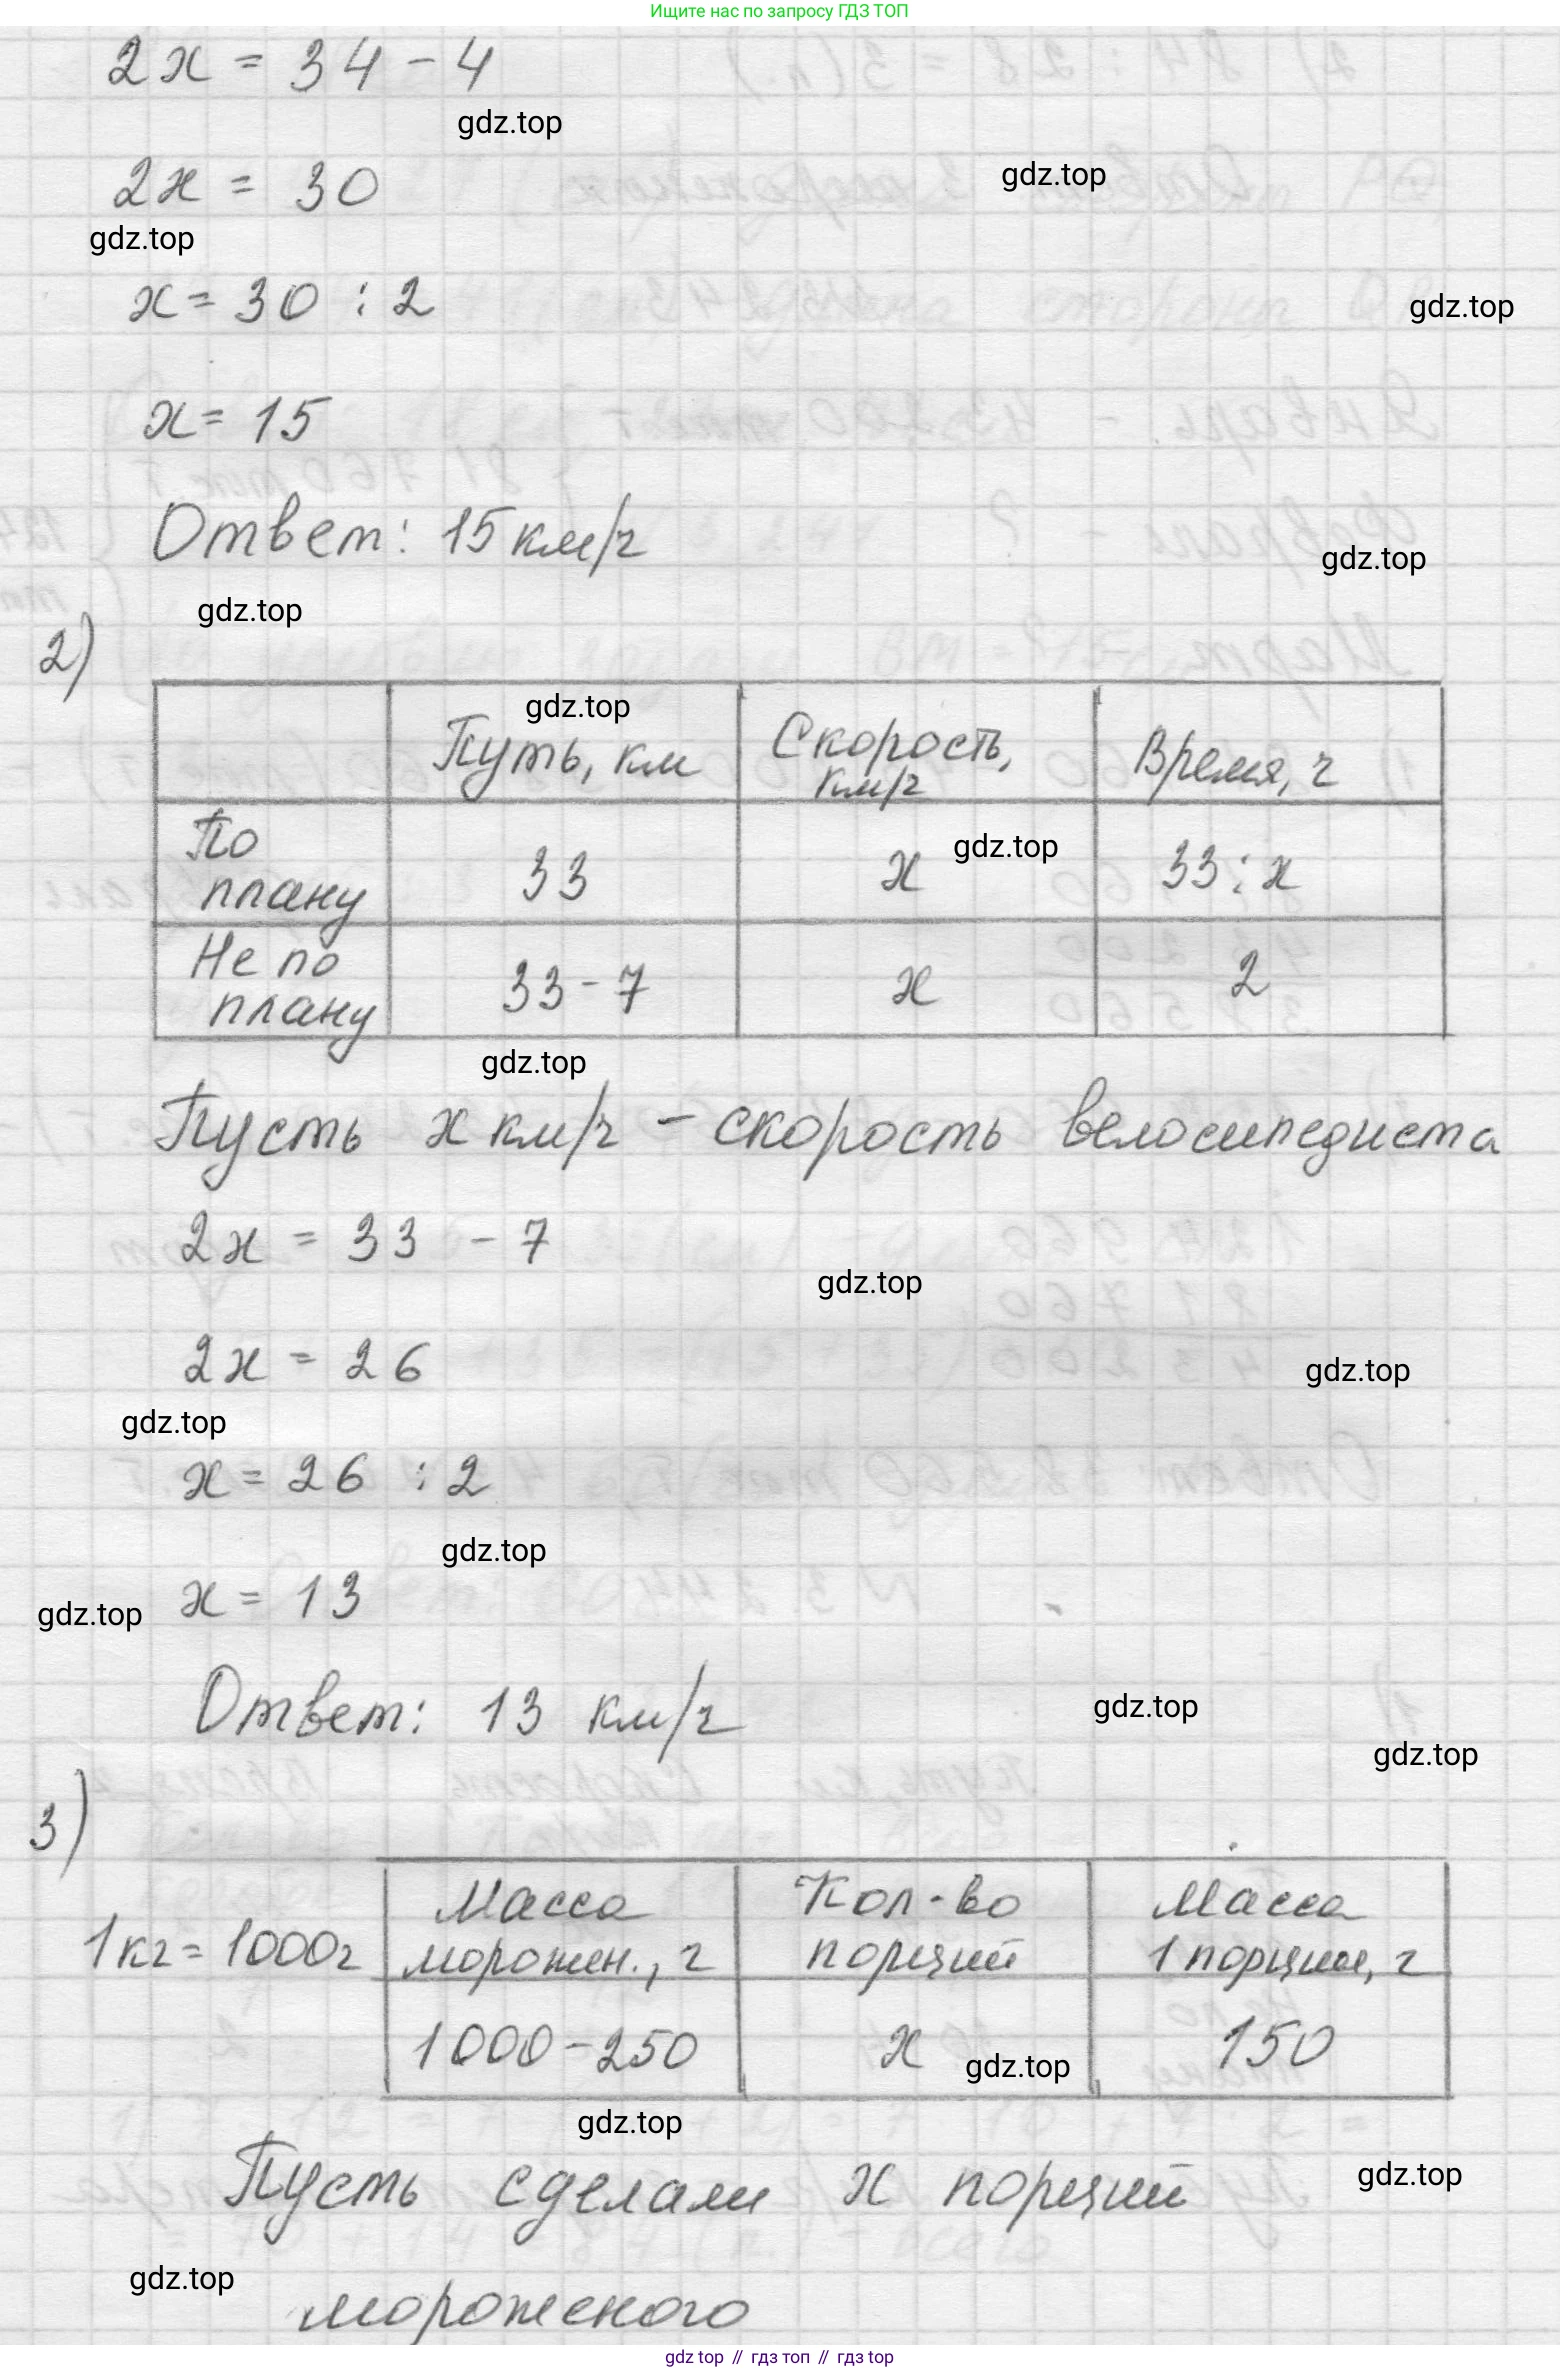 Ищите нас по запросу ГДЗ ТОП
2x = 34 - 4
gdz.top
gdz.top
2x = 30
gdz.top
x = 30 : 2
gdz.top
x = 15
Ответ: 15 км/ч
gdz.top
gdz.top
2)
gdz.top
Путь, км Скорость, км/ч Время, ч
По плану 33 x 33 : x
gdz.top
Не по плану 33 - 7 x 2
gdz.top
Пусть x км/ч - скорость велосипедиста
2x = 33 - 7
gdz.top
2x = 26
gdz.top
gdz.top
x = 26 : 2
gdz.top
x = 13
gdz.top
Ответ: 13 км/ч
gdz.top
gdz.top
3)
1 кг = 1000 г
Масса морожен., г Кол-во порций Масса 1 порции, г
1000 - 250 x 150
gdz.top
gdz.top
Пусть сделали x порций
gdz.top
gdz.top
мороженого
gdz top // гдз топ // гдз top